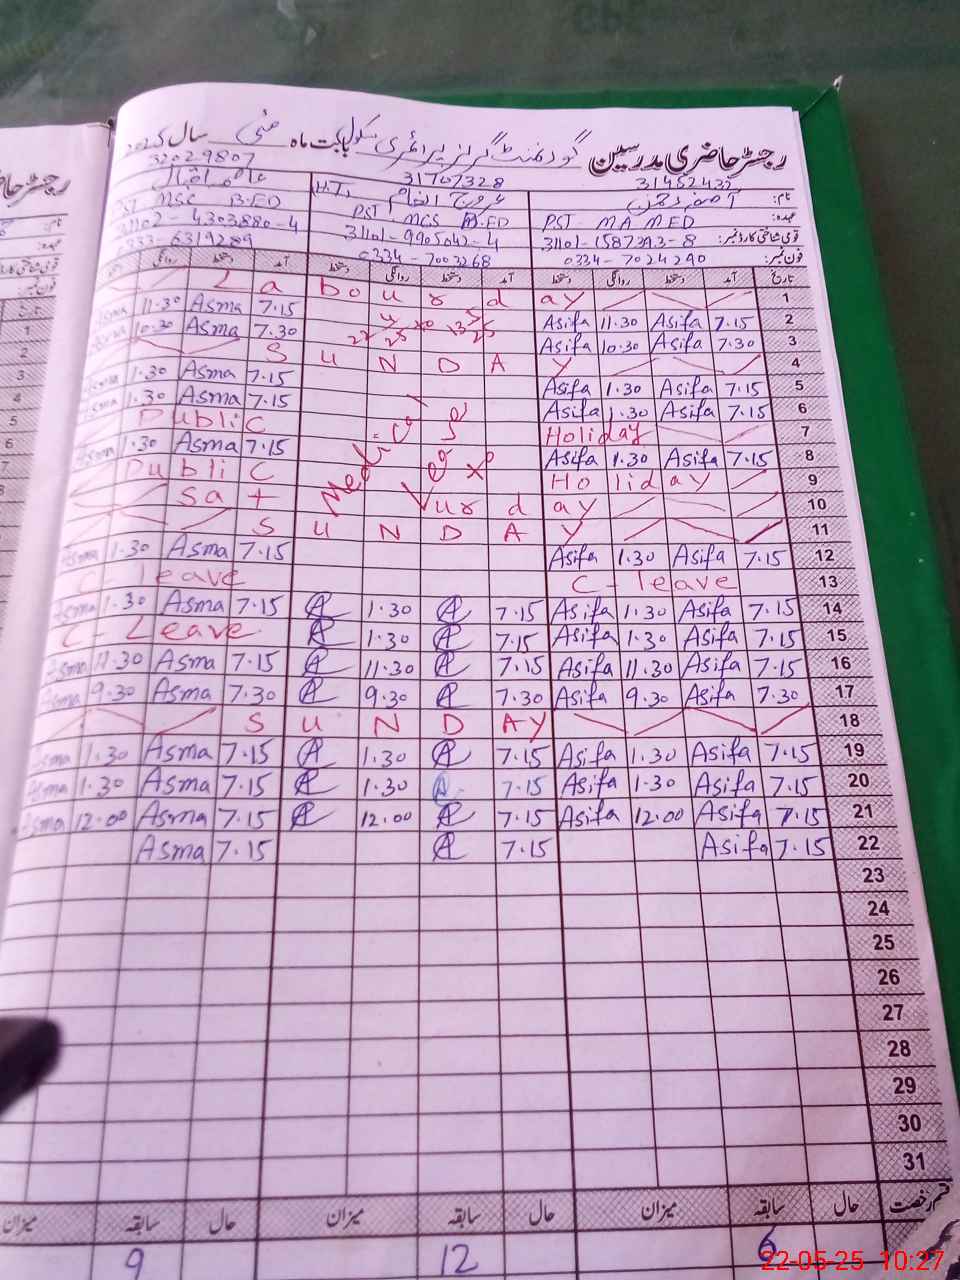 رجسٹر حاضری مدرسین گورنمنٹ گرلز پرائمری سکول بابت ماہ مئی سال 2025
31452435 31707328 32029807
نام:
عہدہ: PST MA MED PST MCS B.ED H.T PST MSC B-ED
قومی شناختی کارڈ نمبر: 31101-1587393-8 31101-9905042-4
فون نمبر: 0334-7024290 0334-7003268 0333-6319289
تاریخ آمد دستخط روانگی دستخط آمد دستخط روانگی دستخط آمد دستخط روانگی
1 La bour d ay
2 7.15 Asifa 11.30 Asifa 7.15 Asma 11.30
3 7.30 Asifa 10.30 Asifa 7.30 Asma 10.30
4 S U N D A Y
5 7.15 Asifa 1.30 Asifa 7.15 Asma 1.30
6 7.15 Asifa 1.30 Asifa 7.15 Asma 1.30
7 Public Holiday
8 7.15 Asifa 1.30 Asifa 7.15 Asma 1.30 Asma
9 Public Holiday
10 Sat ur d ay
11 S U N D A Y
12 7.15 Asifa 1.30 Asifa 7.15 Asma 1.30 Asma
13 C-leave C-leave
14 7.15 Asifa 1.30 Asifa 7.15 1.30 7.15 Asma 1.30 Asma
15 7.15 Asifa 1.30 Asifa 7.15 1.30 C-Leave
16 7.15 Asifa 11.30 Asifa 7.15 11.30 7.15 Asma 11.30 Asma
17 7.30 Asifa 9.30 Asifa 7.30 9.30 7.30 Asma 9.30 Asma
18 S U N D AY
19 7.15 Asifa 1.30 Asifa 7.15 1.30 7.15 Asma 1.30 Asma
20 7.15 Asifa 1.30 Asifa 7.15 1.30 7.15 Asma 1.30 Asma
21 7.15 Asifa 12.00 Asifa 7.15 12.00 7.15 Asma 12.00 Asma
22 7.15 Asifa 7.15 7.15 Asma
23
24
25
26
27
28
29
30
31
قسم رخصت حال سابقہ میزان حال سابقہ میزان حال سابقہ میزان
6 12 9
22-05-25 10:27